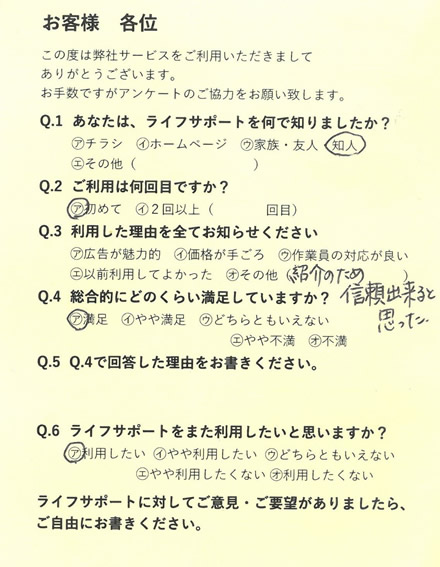 お客様 各位
この度は弊社サービスをご利用いただきまして
ありがとうございます。
お手数ですがアンケートのご協力をお願い致します。
Q.1 あなたは、ライフサポートを何で知りましたか？
㋐チラシ ㋑ホームページ ㋒家族・友人・知人
㋓その他（ ）
Q.2 ご利用は何回目ですか？
㋐初めて ㋑２回以上（ 回目）
Q.3 利用した理由を全てお知らせください
㋐広告が魅力的 ㋑価格が手ごろ ㋒作業員の対応が良い
㋓以前利用してよかった ㋔その他（紹介のため ）
信頼出来ると
思った。
Q.4 総合的にどのくらい満足していますか？
㋐満足 ㋑やや満足 ㋒どちらともいえない
㋓やや不満 ㋔不満
Q.5 Q.4で回答した理由をお書きください。
Q.6 ライフサポートをまた利用したいと思いますか？
㋐利用したい ㋑やや利用したい ㋒どちらともいえない
㋓やや利用したくない ㋔利用したくない
ライフサポートに対してご意見・ご要望がありましたら、
ご自由にお書きください。